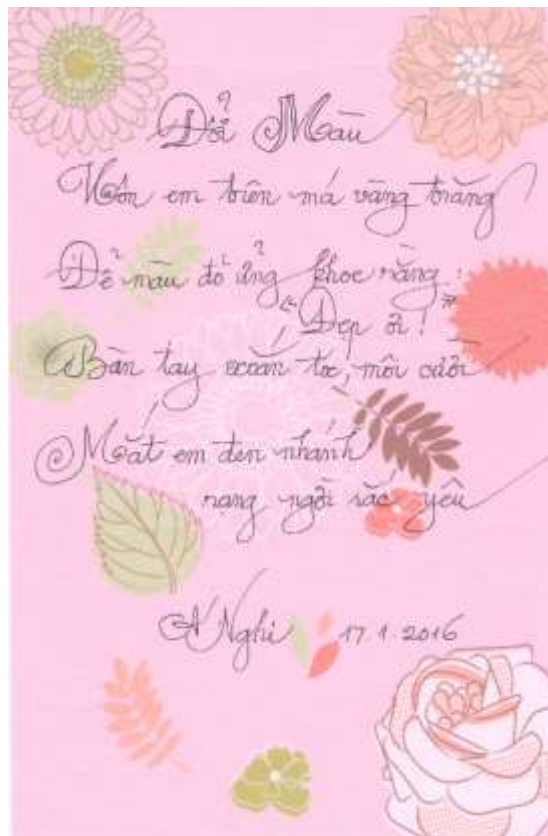 Đổi Màu
Hôn em trên má vầng trăng
Để màu đỏ ửng khoe rằng :
"Đẹp ơi ! "
Bàn tay xoắn tóc, môi cười
Mắt em đen nhánh
rạng ngời sắc yêu
A Nghi 17 1 2016